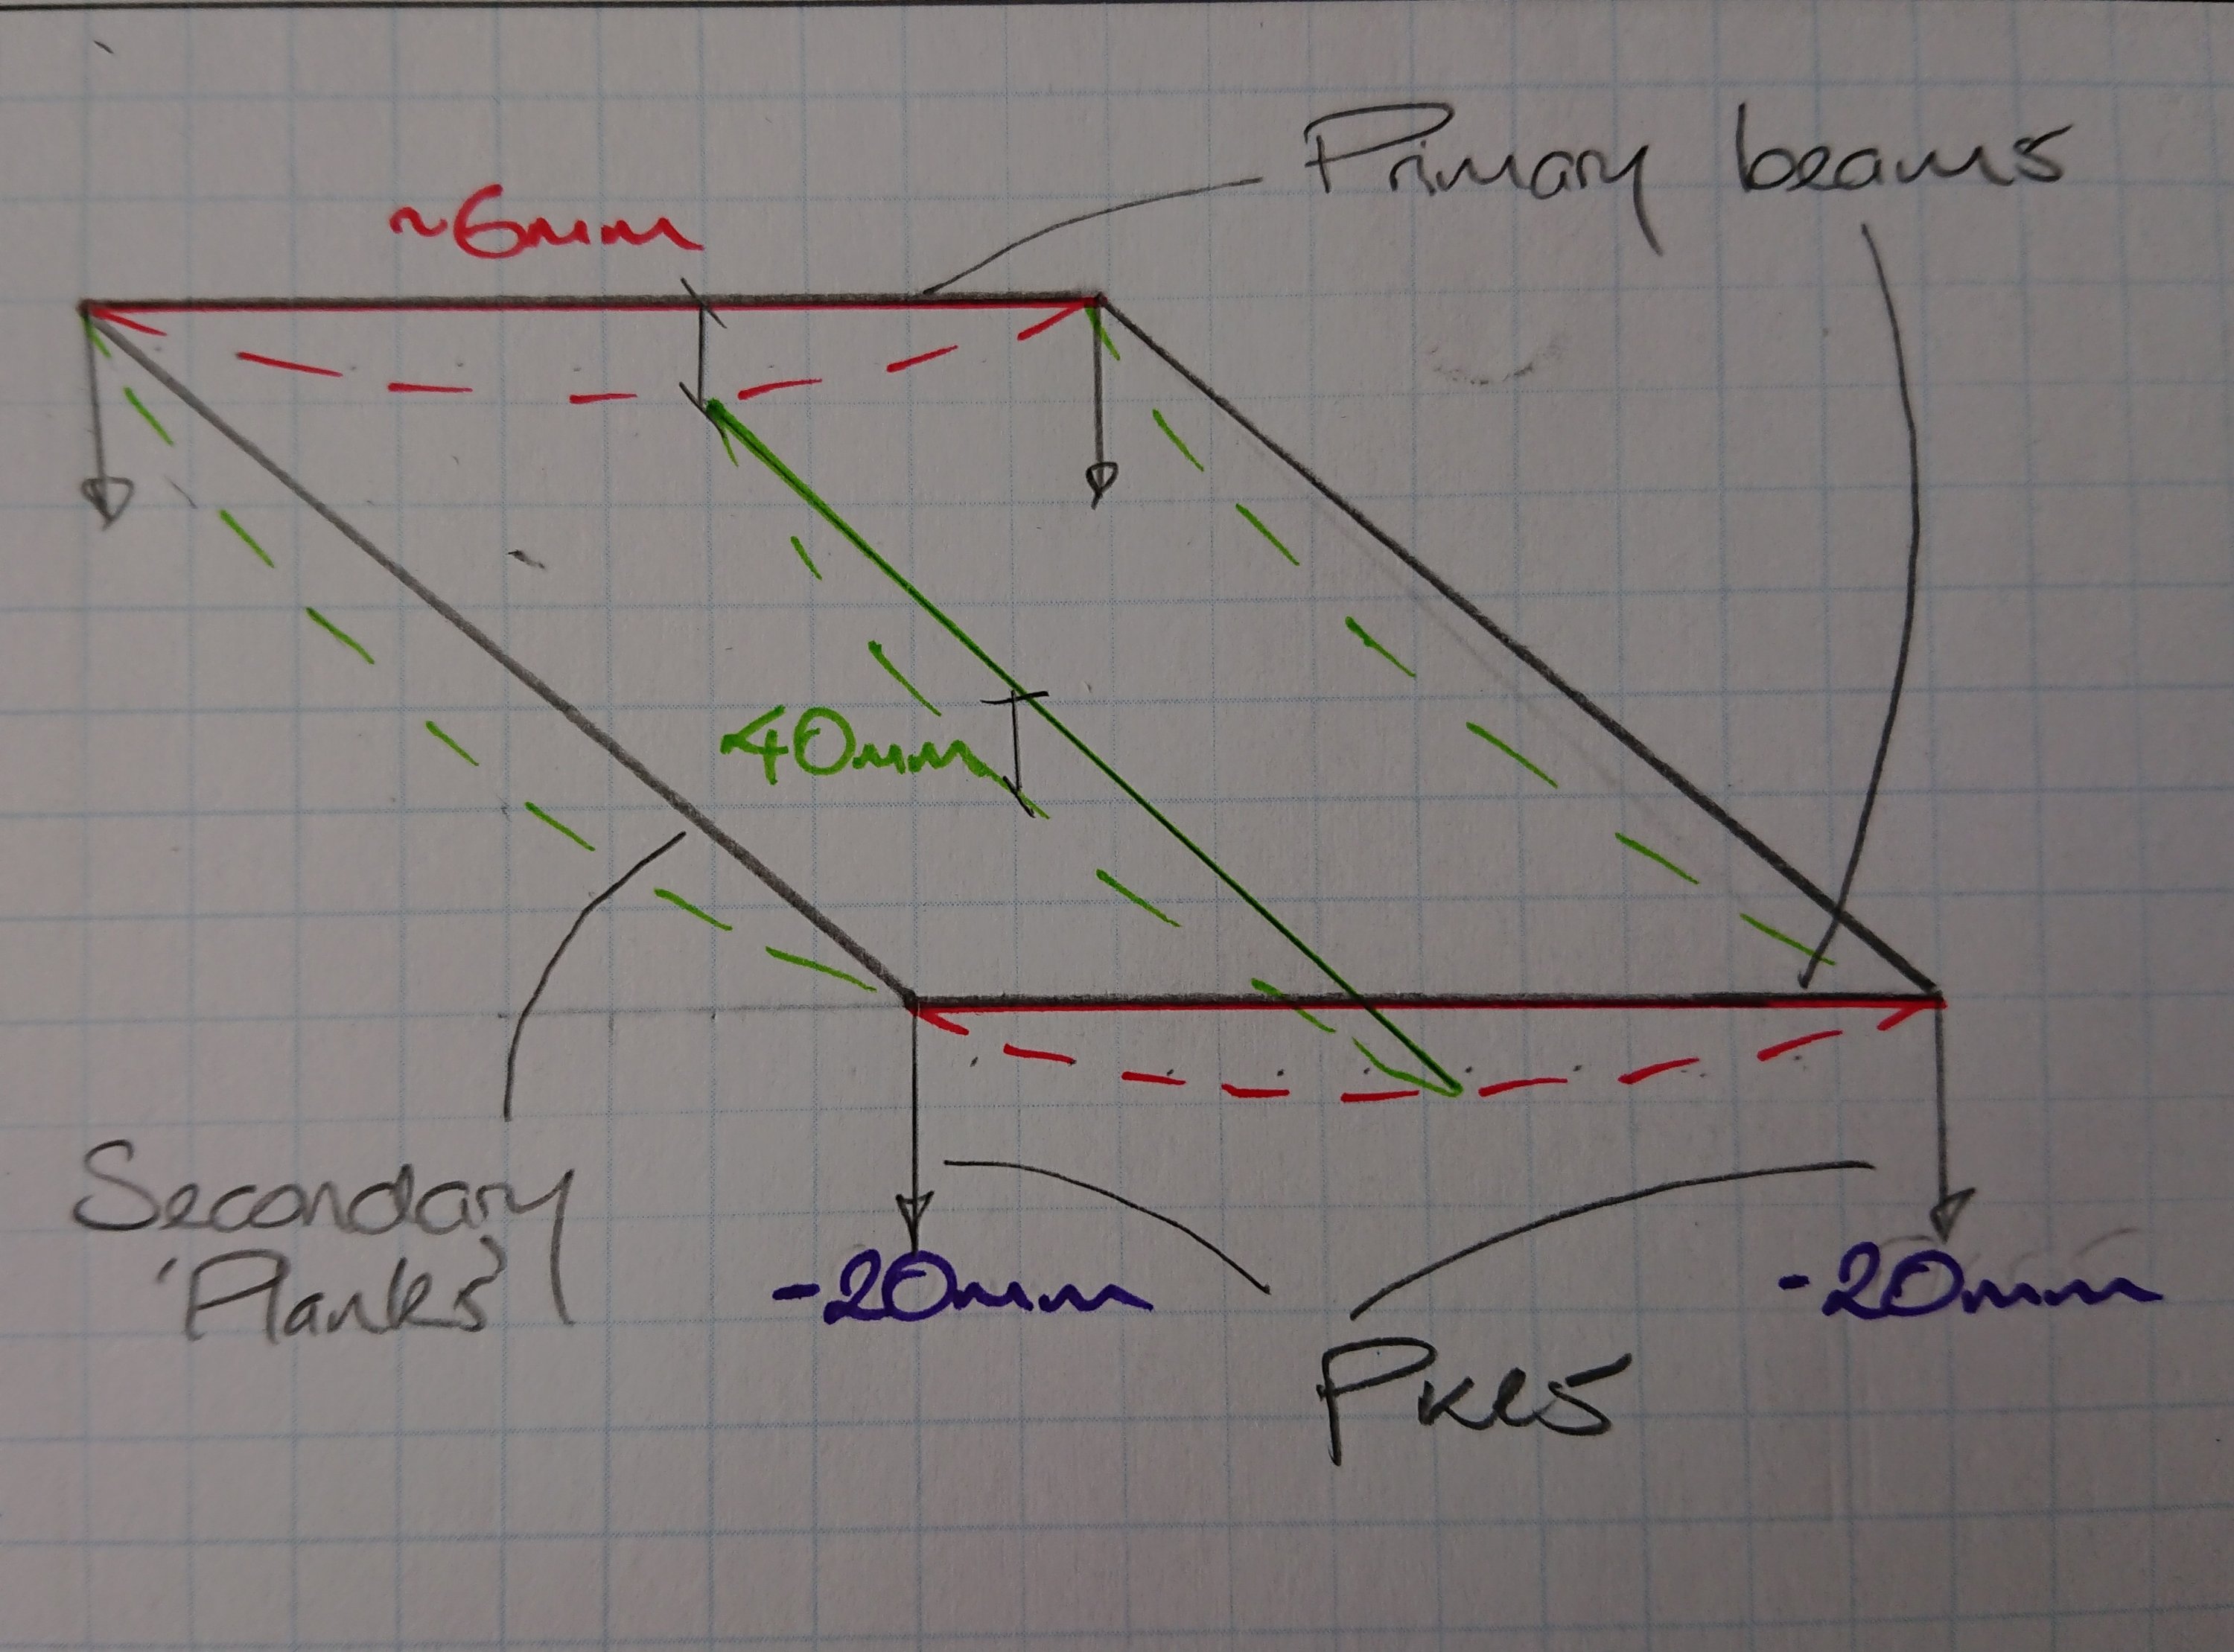 Primary beams
~6mm
40mm
Secondary
'Planks'
-20mm
-20mm